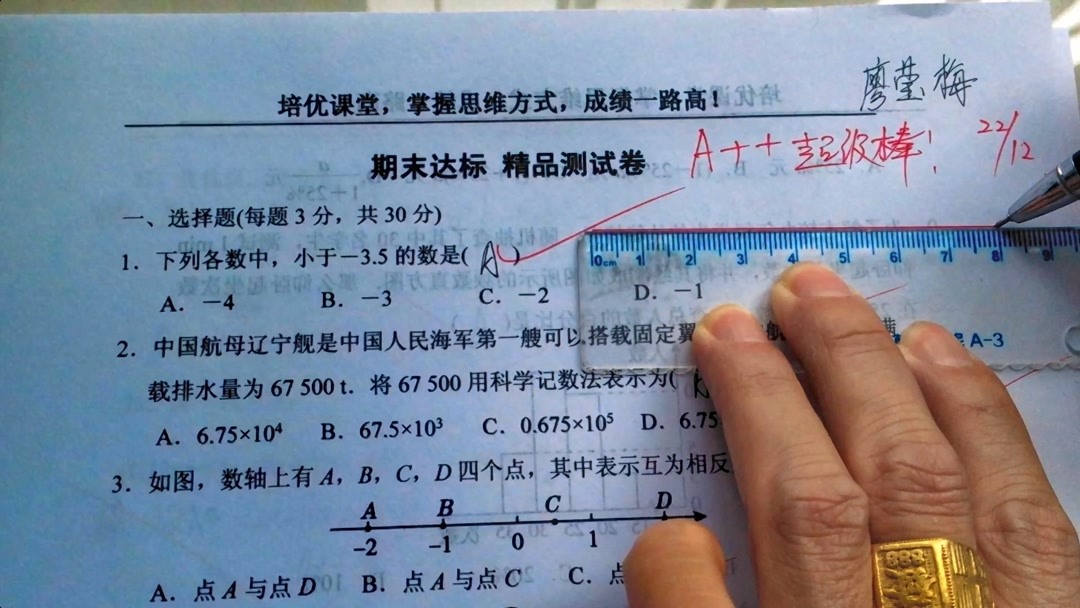 廖莹梅
培优课堂，掌握思维方式，成绩一路高！
期末达标 精品测试卷
A++超级棒！ 22/12
一、选择题(每题 3 分，共 30 分)
1．下列各数中，小于－3.5 的数是( A )
A．－4 B．－3 C．－2 D．－1
0cm 1 2 3 4 5 6 7 8 9
A-3
2．中国航母辽宁舰是中国人民海军第一艘可以搭载固定翼
载排水量为 67 500 t．将 67 500 用科学记数法表示为(
A．6.75×10⁴ B．67.5×10³ C．0.675×10⁵ D．6.75
3．如图，数轴上有 A，B，C，D 四个点，其中表示互为相反
A B C D
-2 -1 0 1
A．点 A 与点 D B．点 A 与点 C C．点